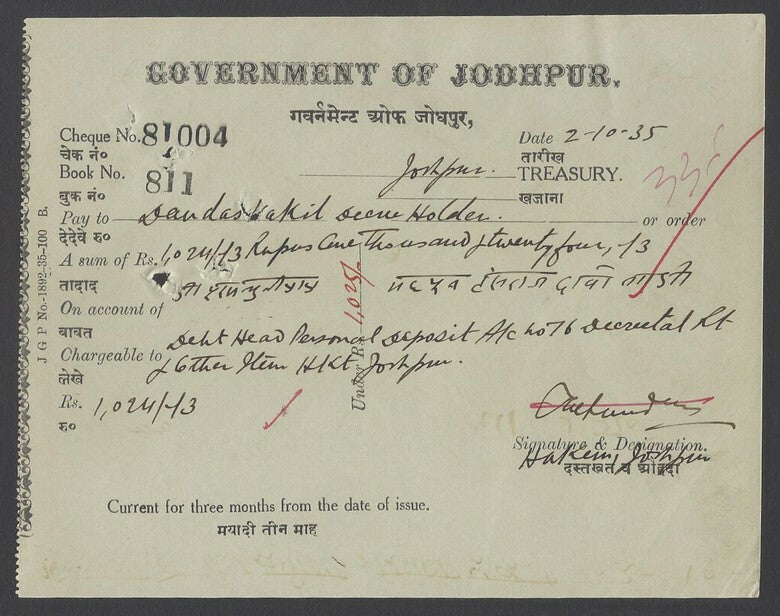 GOVERNMENT OF JODHPUR.
गवर्नमेन्ट ओफ जोधपुर,
Cheque No. 81004
चेक नं०
Date 2-10-35
तारीख
Book No. 811
बुक नं०
Jodhpur. TREASURY.
खजाना
Pay to Dandas Vakil Decree Holder. or order
देदेवे रु०
A sum of Rs. 1,024/-/3 Rupees One Thousand & twenty four, -/3
तादाद
On account of
बाबत
Debt Head Personal Deposit A/c No 76 Decretal Rt
Chargeable to & Other Item Hkt Jodhpur.
लेखे
Rs. 1,024/-/3
रु०
Under Rs. 1,025/-
Signature & Designation.
Hakem, Jodhpur
दस्तखत व ओहदा
Current for three months from the date of issue.
मयादी तीन माह
J G P No.-1892-35-100 B.